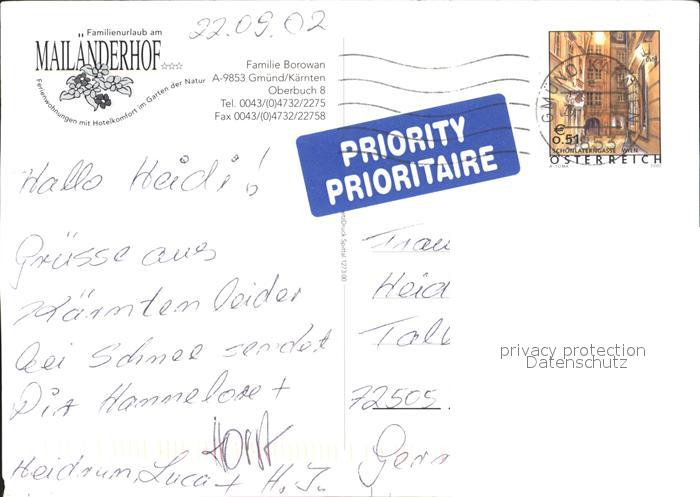 22.09.02
Familienurlaub am
MAILÄNDERHOF
Ferienwohnungen mit Hotelkomfort im Garten der Natur
Familie Borowan
A-9853 Gmünd/Kärnten
Oberbuch 8
Tel. 0043/(0)4732/2275
Fax 0043/(0)4732/22758
€ 0.51
SCHÖNLATERNGASSE WIEN
ÖSTERREICH
A. TUMA 2002
PRIORITY
PRIORITAIRE
Hallo Heidi!
Grüsse aus
Kärnten leider
bei Schnee sendet
Dir Hannelore +
Horst
Heidrun, Luca + H. J.
Druck Spittal 1273 00
Frau
Heid
Tal
72505
Gerr
privacy protection
Datenschutz